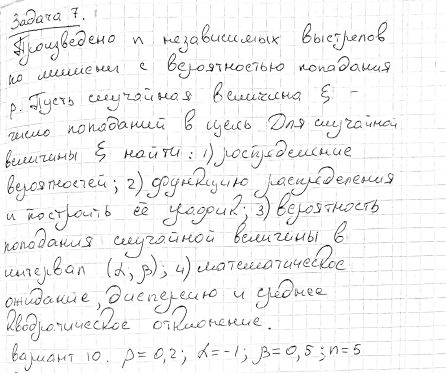 Задача 7.
Произведено n независимых выстрелов
по мишени с вероятностью попадания
р. Пусть случайная величина ξ –
число попаданий в цель Для случайной
величины ξ найти: 1) распределение
вероятностей; 2) функцию распределения
и построить её график; 3) вероятность
попадания случайной величины в
интервал (α, β); 4) математическое
ожидание, дисперсию и среднее
квадратическое отклонение.
вариант 10. р = 0,2; α = -1; β = 0,5; n = 5